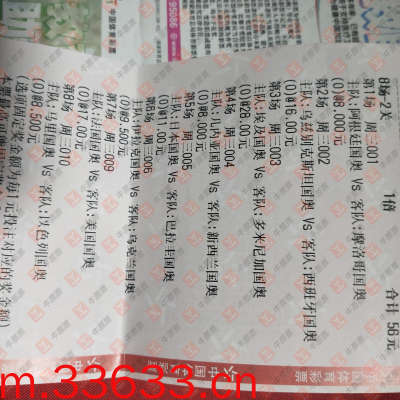 8场-2关 1倍 合计 56元
第1场 周三001
主队:阿根廷国奥 Vs 客队:摩洛哥国奥
(0)@16.00元
第2场 周三002
主队:乌兹别克斯坦国奥 Vs 客队:西班牙国奥
第3场 周三003
主队:埃及国奥 Vs 客队:多米尼加国奥
(0)@28.00元
第4场 周三004
主队:几内亚国奥 Vs 客队:新西兰国奥
(0)@8.000元
第5场 周三005
主队:日本国奥 Vs 客队:巴拉圭国奥
(0)@11.00元
第6场 周三006
主队:伊拉克国奥 Vs 客队:乌克兰国奥
(0)@9.500元
第7场 周三009
主队:法国国奥 Vs 客队:美国国奥
(0)@17.00元
第8场 周三010
主队:马里国奥 Vs 客队:以色列国奥
(0)@8.500元
(选项固定奖金额为每1元投注对应的奖金额)
中国体育彩票
95086
m.33633.cn